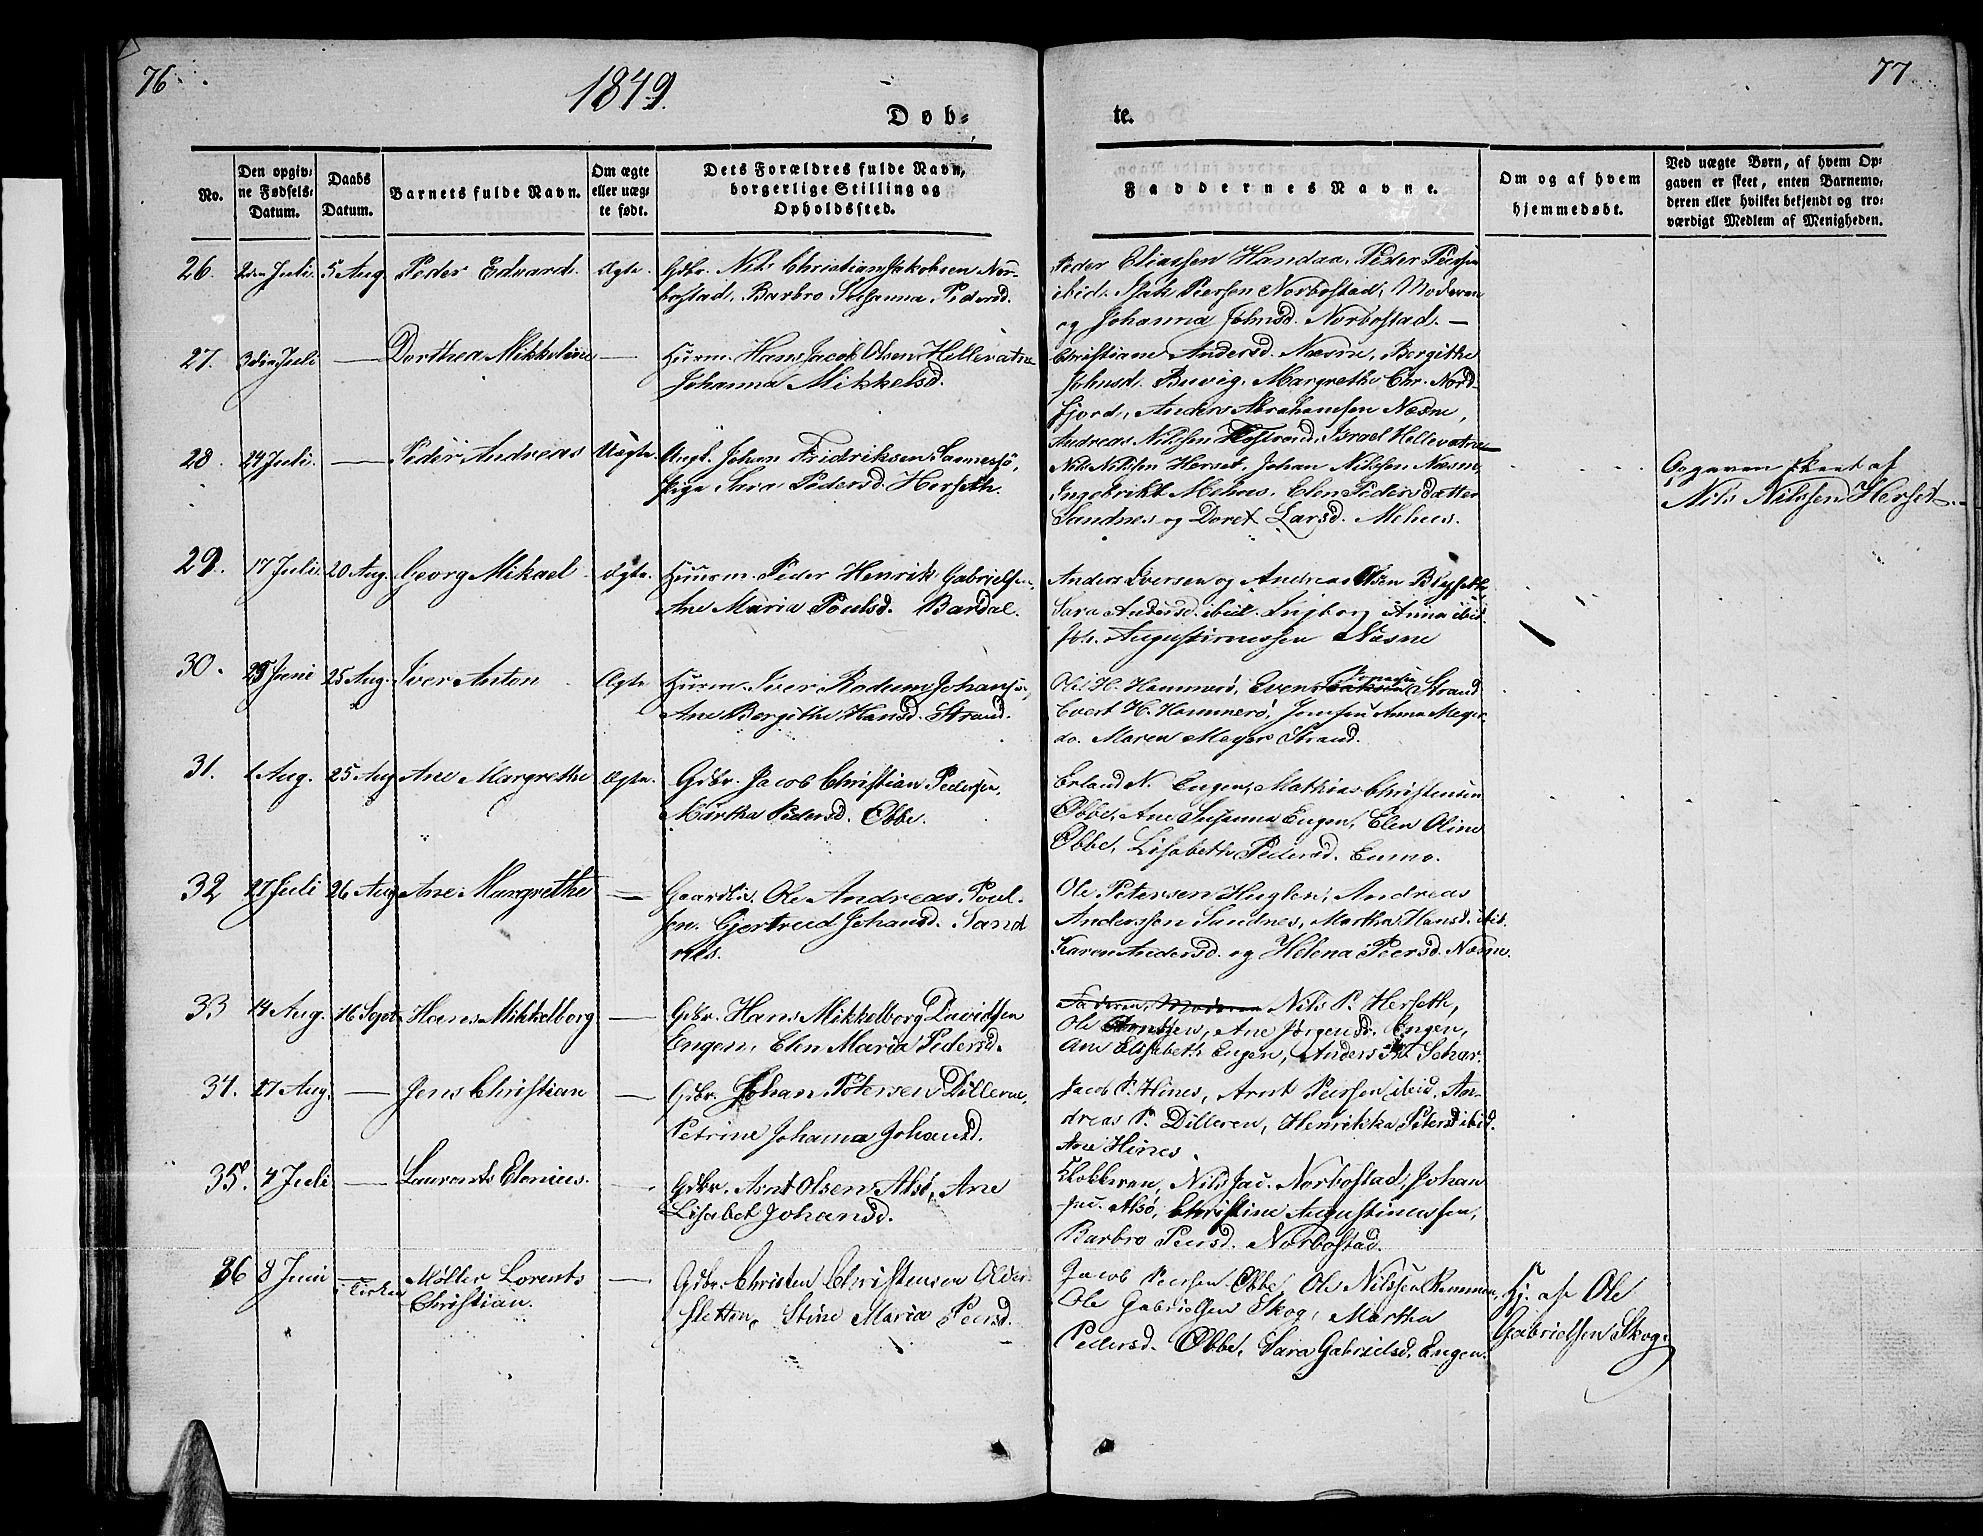 76
1849.
77
Døb-
te.
No.
Den opgiv-
ne Fødsels-
Datum.
Daabs
Datum.
Barnets fulde Navn.
Om ægte
eller uæg-
te født.
Dets Forældres fulde Navn,
borgerlige Stilling og
Opholdssted.
Faddernes Navne.
Om og af hvem
hjemmedøbt.
Ved uægte Børn, af hvem Op-
gaven er skeet, enten Barnemo-
deren eller hvilket bekjendt og tro-
værdigt Medlem af Menigheden.
26. 2den Juli. 5 Aug. Peder Edvard. Ægte. Gdbr. Nils Christian Jakobsen Nor-
bostad, Barbro Susanna Pedersd.
Peder Eliassen Handaa, Peder Peersen
ibid. Isak Peersen Norbostad, Moderen
og Johanna Johnsd. Norbostad. —
27. 3die Juli — Dorthea Mikkeline — Husm. Hans Jacob Olsen Hellevatne
Johanna Mikkelsd.
Christiane Andersd. Næsne, Bergithe
Johnsd. Buvig. Margrethe Chr. Nord-
fjord, Anders Abrahamsen Næsne,
Andreas Nilssen Israel Hellevatne
28. 24 Juli. — Peder Andreas Uægte. Ungk. Johan Fridriksen Sannessjø,
Pige Sara Pedersd. Herseth.
Nils Nilssen Herset, Johan Nilssen Næsne,
Ingebrikt Mehus, Elen Pedersdatter
Sandnes og Doret Larsd. Mehus.
Opgaven skeet af
Nils Nilssen Herset.
29. 17 Juli. 20 Aug. Georg Mikael Ægte. Huusm. Peder Henrik Gabrielsen,
Ane Maria Poulsd. Bardal.
Anders Iversen og Andreas Olsen
Sara Andersd. ibid. Ingborg Anna ibid.
Joh. Augustinussen Næsne
30. 29 Juni 25 Aug. Iver Anton Ægte. Husm. Iver Rodum Johans.,
Ane Bergithe Hansd. Strand.
Ole H. Hammerø, Even Strand
Evert H. Hammerø, Jomfru Anna Meyer
do. Maren Meyer Strand.
31. 1 Aug. 25 Aug Ane Margrethe Ægte. Gdbr. Jacob Christian Pedersen,
Martha Pedersd. Øbbe.
Erland N. Engen, Mathias Christensen
Øbbe, Ane Susanna Engen, Elen Oline
Øbbe, Lisabeth Pedersd. Enmo.
32 27 Juli 26 Aug Ane Margrethe — Gaardbr. Ole Andreas Poul-
sen. Gjertrud Johansd. Sand
nes.
Ole Petersen Huglen, Andreas
Anderssen Sandnes, Martha Hansd. ibid.
Karen Andersd. og Helena Peersd. Næsne.
33 14 Aug. 16 Sept. Hans Mikkelborg — Gdbr. Hans Mikkelborg Davidsen
Engen, Elen Maria Pedersd.
Faderen, Moderen Nils P. Herseth,
Ole Arntsen, Ane Jørgensd. Engen,
Ane Elisabeth Engen, Anders
34. 27 Aug. — Jens Christian — Gdbr. Johan Petersen Dilleren,
Petrine Johanna Johansd.
Jacob P. Hines, Arnt Peersen ibid, An-
dreas P. Dilleren, Henrikka Petersd ibid.
Ane Hines.
35. 4 Juli — Laurents Elenius. — Gdbr. Arnt Olsen Alsø, Ane
Lisabet Johansd.
Klokkeren, Nils Jac. Norbostad, Johan
Jac. Alsø, Christine Augustinussen,
Barbro Peersd. Norbostad.
36 8 Juni — i Kirken Møller Lorents
Christian. — Gdbr. Christen Christensen Older
sletten, Stine Maria Peersd.
Jacob Peersen Øbbe, Ole Nilssen
Ole Gabrielsen Skog, Martha
Pedersd. Øbbe, Sara Gabrielsd. Engen.
Hj. af Ole
Gabrielsen Skog.